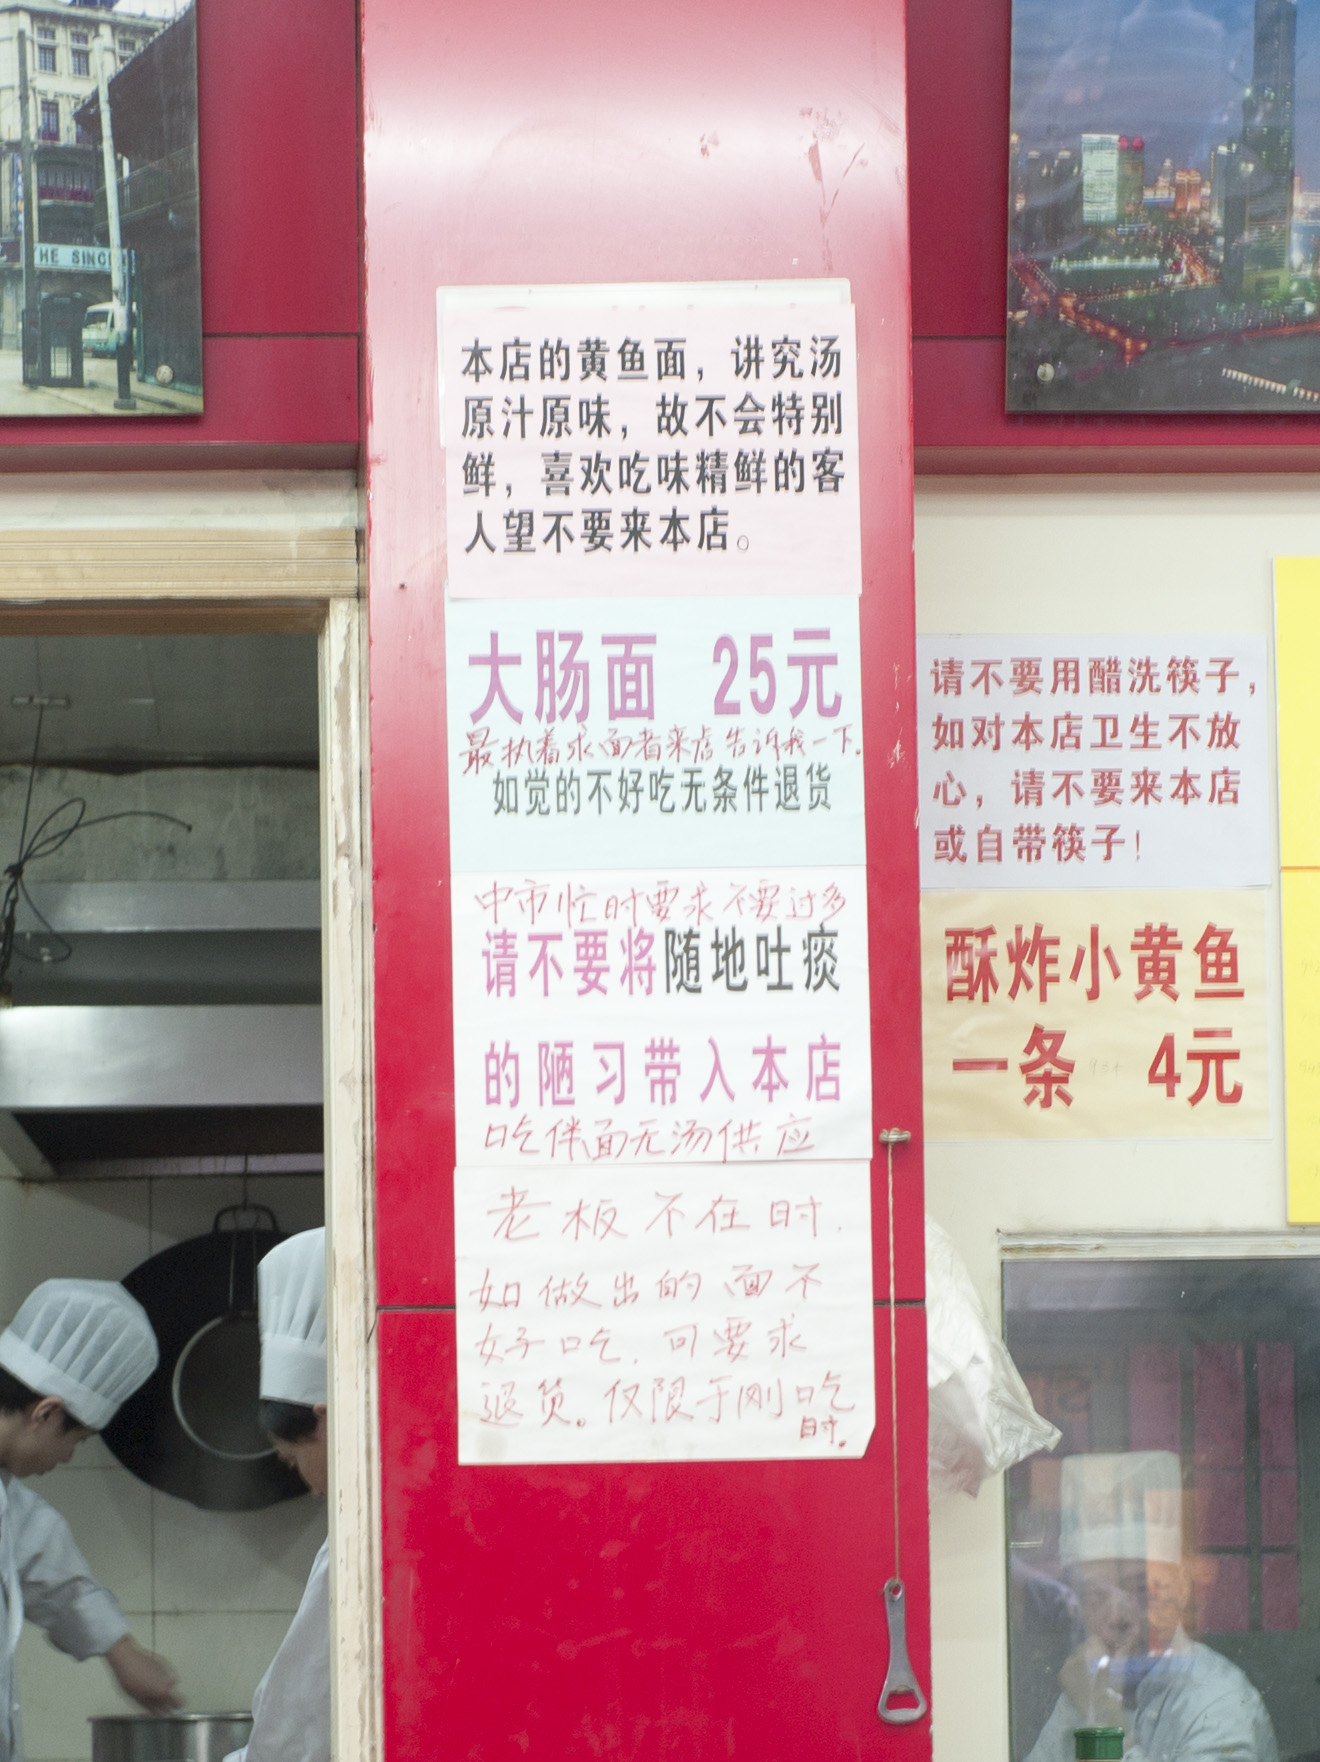 THE SINC
本店的黄鱼面，讲究汤
原汁原味，故不会特别
鲜，喜欢吃味精鲜的客
人望不要来本店。
大肠面 25元
最执着求面者来店告诉我一下。
如觉的不好吃无条件退货
中市忙时要求不要过多
请不要将随地吐痰
的陋习带入本店
吃伴面无汤供应
老板不在时.
如做出的面不
好吃.可要求
退货。仅限于刚吃
时.
请不要用醋洗筷子，
如对本店卫生不放
心，请不要来本店
或自带筷子！
酥炸小黄鱼
一条 4元